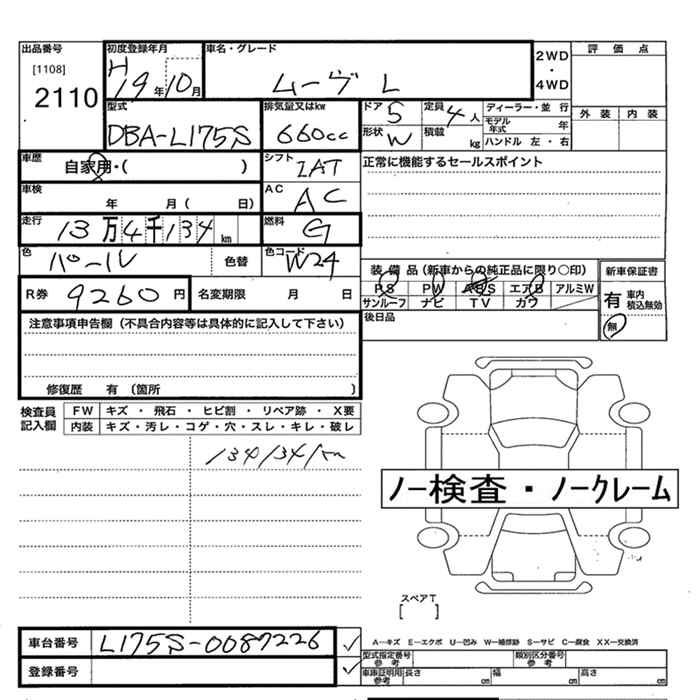 出品番号 初度登録年月 車名・グレード 2WD・4WD 評価点
[1108] H19年10月 ムーヴ L
2110 型式 排気量又はkw ドア 5 定員 4人 ディーラー・並行 外装 内装
DBA-L175S 660cc 形状 W 積載 kg モデル年式 年
ハンドル 左・右
車歴 自家用・( ) シフト IAT 正常に機能するセールスポイント
車検 年 月( 日) AC AC
走行 13万4千134km 燃料 G
色 パール 色替 色コード W24 装備品(新車からの純正品に限り○印) 新車保証書
R券 9260円 名変期限 月 日 PS PW ABS エアB アルミW 有 車内積込無効
サンルーフ ナビ TV カワ 無
注意事項申告欄(不具合内容等は具体的に記入して下さい) 後日品
修復歴 有(箇所 )
検査員記入欄 FW キズ・飛石・ヒビ割・リペア跡・X要
内装 キズ・汚レ・コゲ・穴・スレ・キレ・破レ
134134km
ノー検査・ノークレーム
スペアT
[ ]
車台番号 L175S-0087226 A―キズ E―エクボ U―凹み W―補修跡 S―サビ C―腐食 XX―交換済
型式指定番号 参考 類別区分番号 参考
登録番号 車庫証明用 参考 長さ cm 幅 cm 高さ cm